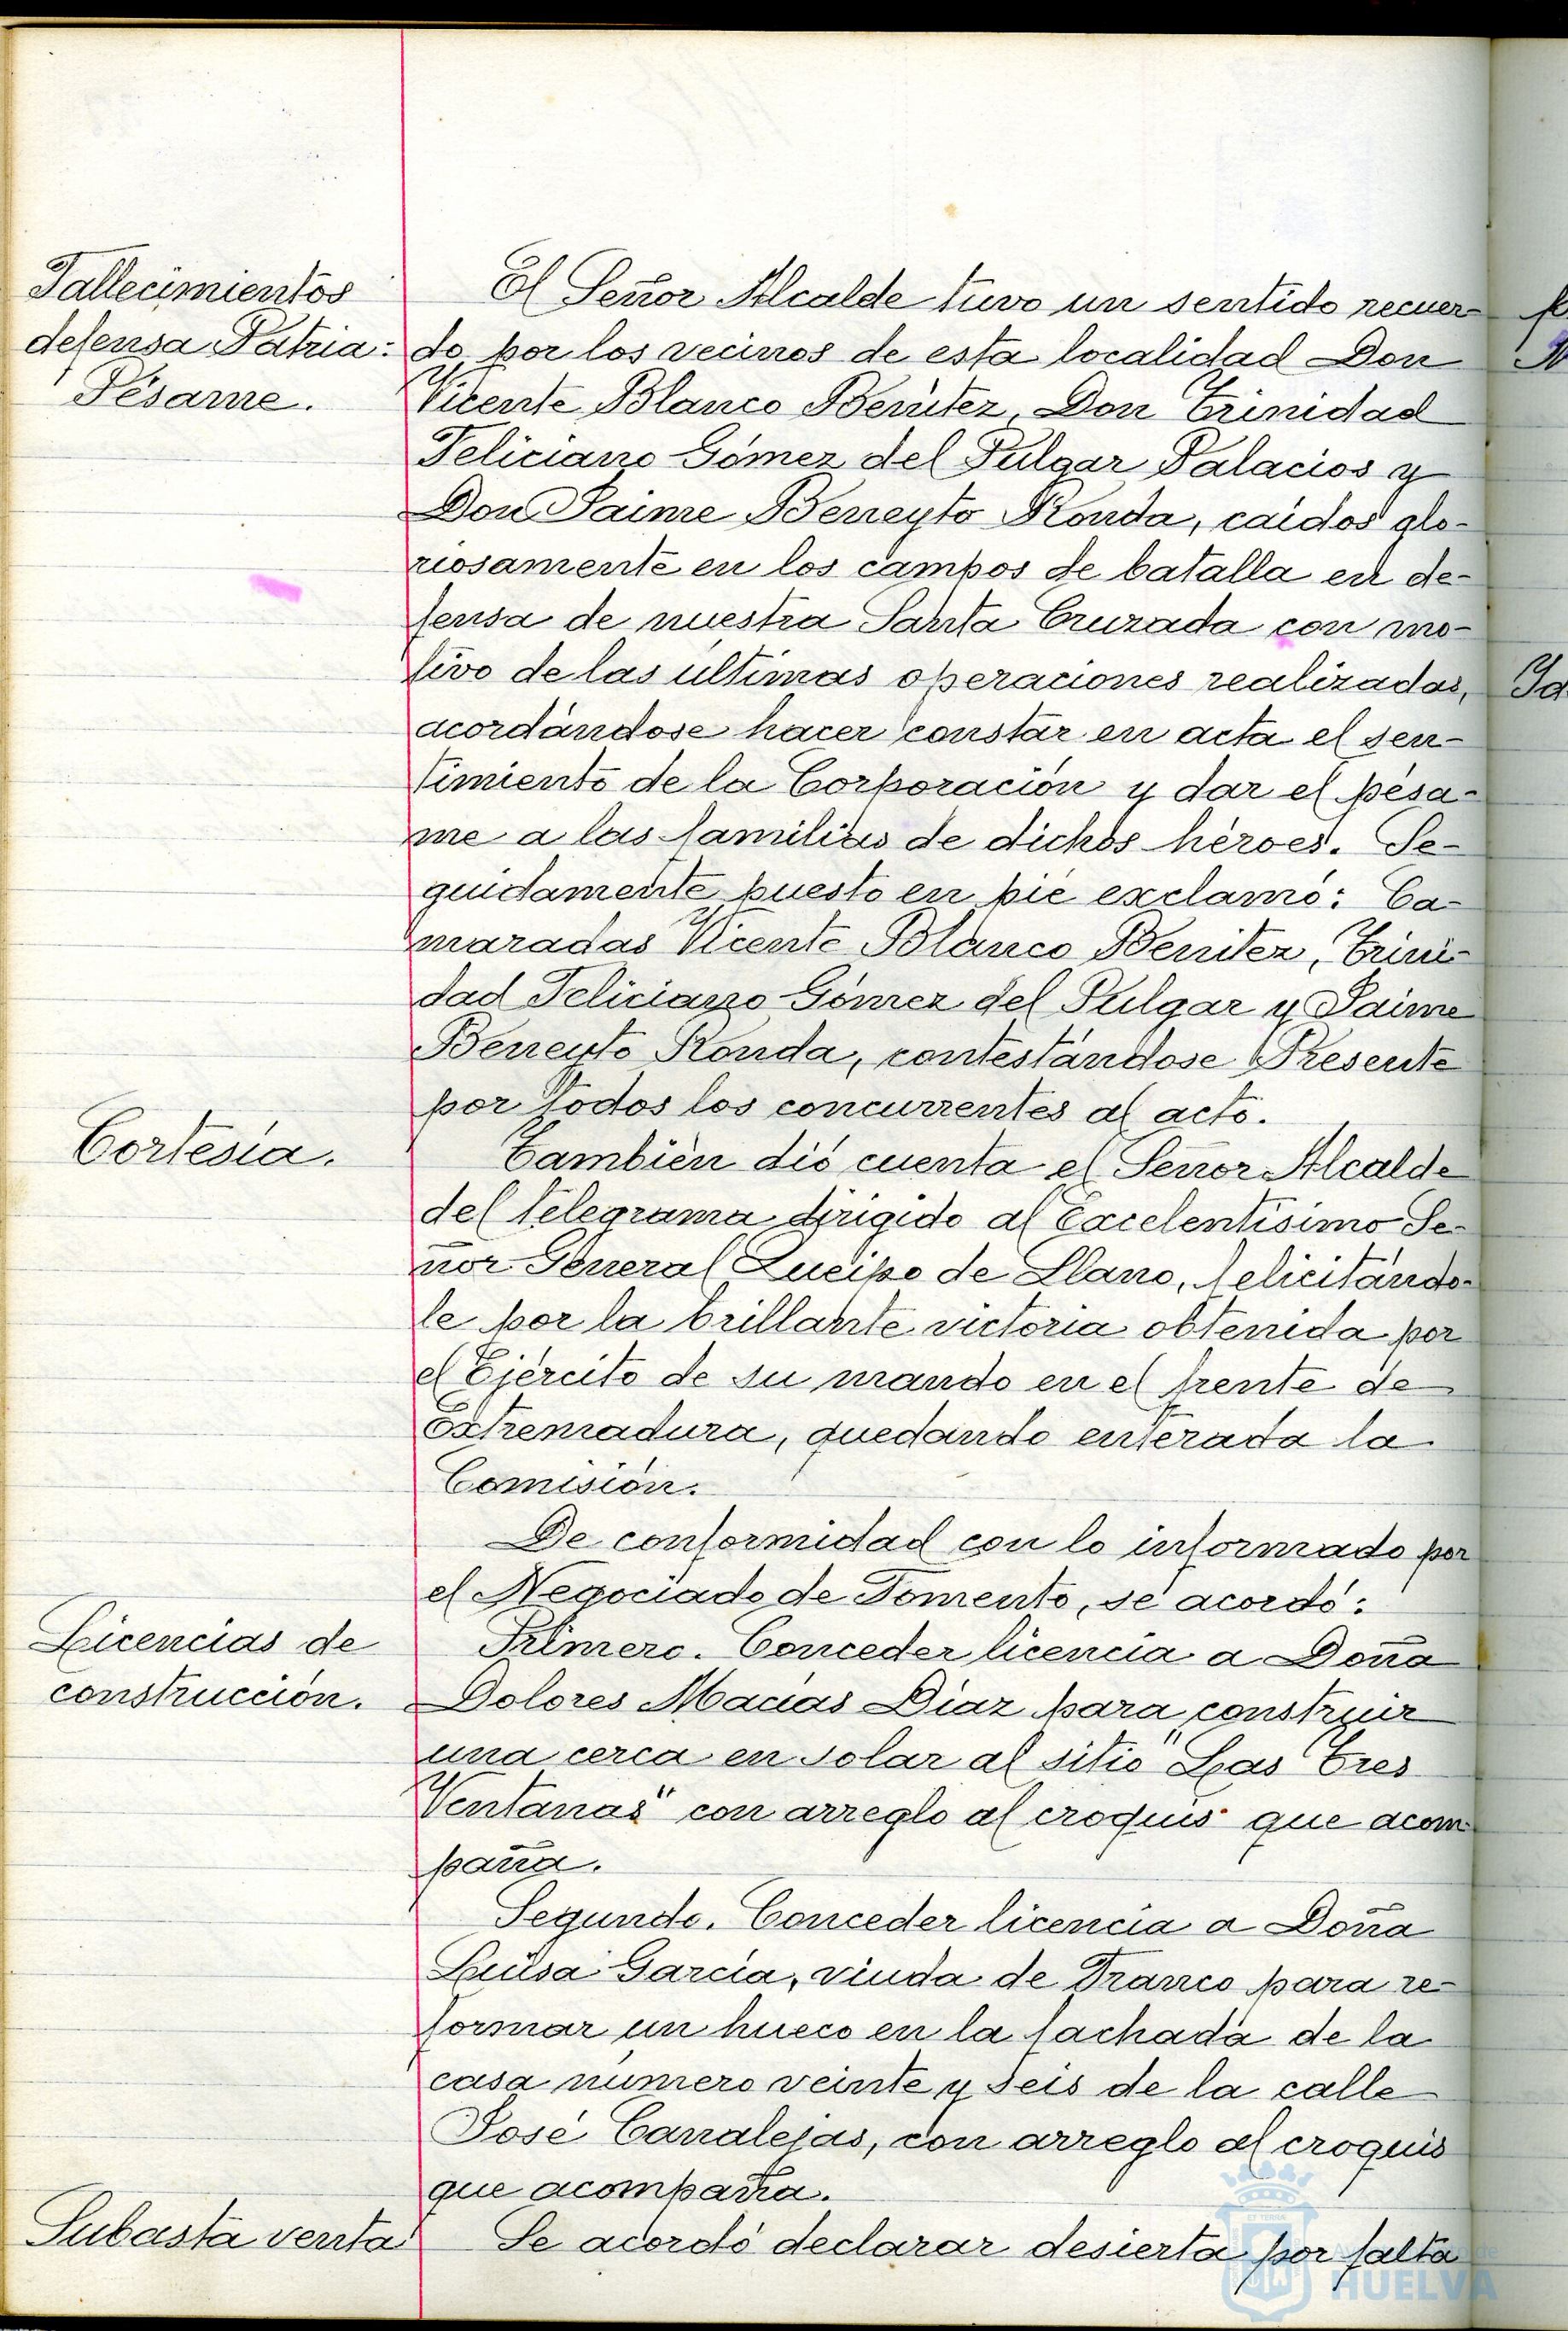 Fallecimientos
defensa Patria:
Pésame.
El Señor Alcalde tuvo un sentido recuer-
do por los vecinos de esta localidad Don
Vicente Blanco Benitez, Don Trinidad
Feliciano Gómez del Pulgar Palacios y
Don Jaime Beneyto Ronda, caidos glo-
riosamente en los campos de batalla en de-
fensa de nuestra Santa Cruzada con mo-
tivo de las últimas operaciones realizadas,
acordándose hacer constar en acta el sen-
timiento de la Corporación y dar el pésa-
me a las familias de dichos héroes. Se-
guidamente puesto en pie exclamó: Ca-
maradas Vicente Blanco Benitez, Trini-
dad Feliciano Gómez del Pulgar y Jaime
Beneyto Ronda, contestándose Presente
por todos los concurrentes al acto.
Cortesía.
También dió cuenta el Señor Alcalde
del telegrama dirigido al Excelentísimo Se-
ñor General Queipo de Llano, felicitándo-
le por la brillante victoria obtenida por
el Ejército de su mando en el frente de
Extremadura, quedando enterada la
Comisión.
De conformidad con lo informado por
el Negociado de Fomento, se acordó:
Licencias de
construcción.
Primero. Conceder licencia a Doña
Dolores Macías Díaz para construir
una cerca en solar al sitio "Las Tres
Ventanas" con arreglo al croquis que acom
paña.
Segundo. Conceder licencia a Doña
Luisa García, viuda de Franco para re-
formar un hueco en la fachada de la
casa número veinte y seis de la calle
José Canalejas, con arreglo al croquis
que acompaña.
Subasta venta
Se acordó declarar desierta por falta
HUELVA